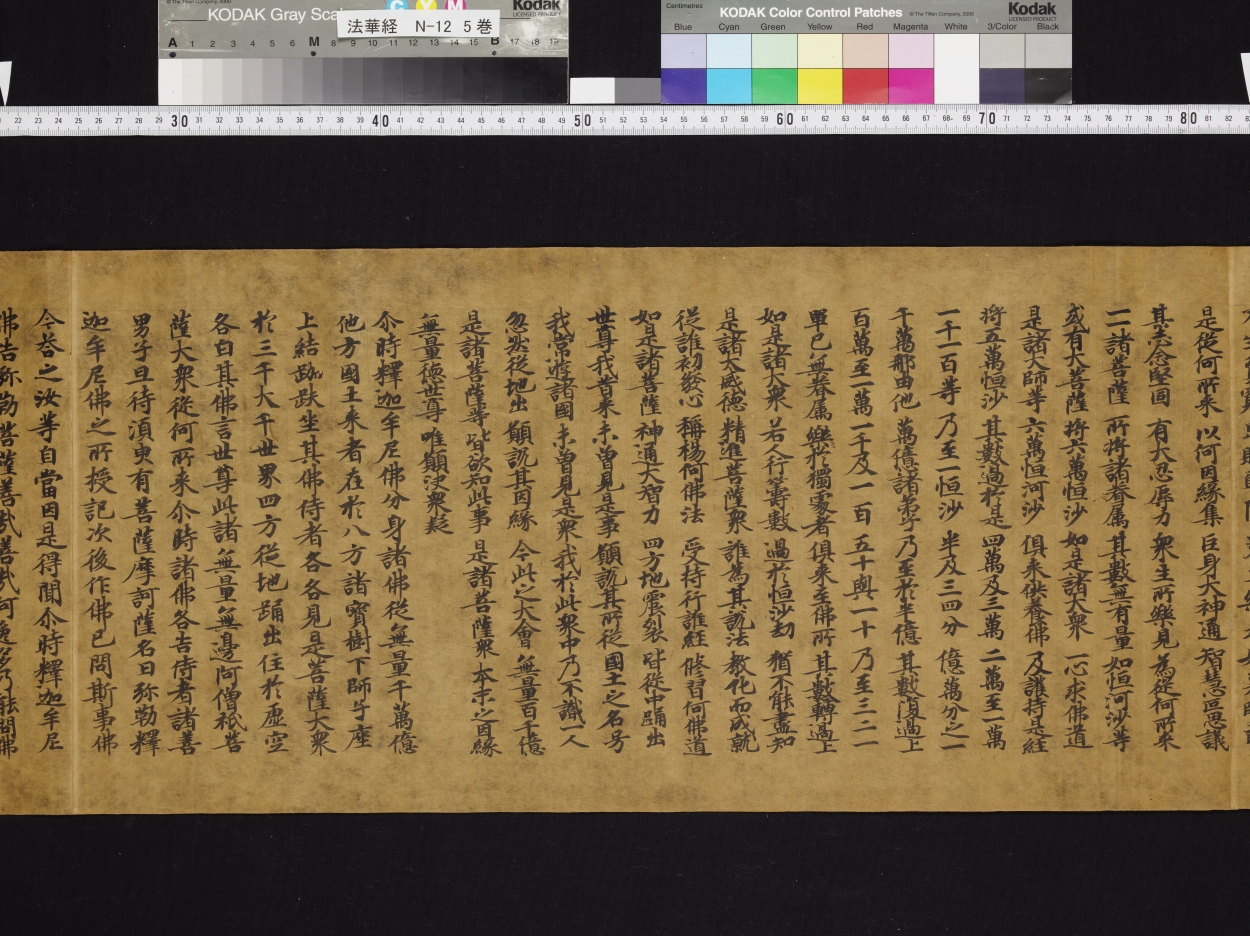 © The Tiffen Company, 2000
KODAK Gray Scale
C Y M
Kodak
LICENSED PRODUCT
法華経 N-12 5巻
A 1 2 3 4 5 6 M 8 9 10 11 12 13 14 15 B 17 18 19
Centimetres
KODAK Color Control Patches
© The Tiffen Company, 2000
Kodak
LICENSED PRODUCT
Blue Cyan Green Yellow Red Magenta White 3/Color Black
22 23 24 25 26 27 28 29 30 31 32 33 34 35 36 37 38 39 40 41 42 43 44 45 46 47 48 49 50 51 52 53 54 55 56 57 58 59 60 61 62 63 64 65 66 67 68 69 70 71 72 73 74 75 76 77 78 79 80 81 82
是從何所來 以何因緣集 巨身大神通 智慧叵思議
其志念堅固 有大忍辱力 衆生所樂見 為從何所來
一一諸菩薩 所將諸眷属 其數無有量 如恒河沙等
或有大菩薩 將六萬恒沙 如是諸大衆 一心求佛道
是諸大師等 六萬恒河沙 俱来供養佛 及護持是経
將五萬恒沙 其數過於是 四萬及三萬 二萬至一萬
一千一百等 乃至一恒沙 半及三四分 億萬分之一
千萬那由他 萬億諸弟子 乃至於半億 其數復過上
百萬至一萬 一千及一百 五十與一十 乃至三二一
單己無眷属 樂於獨處者 俱来至佛所 其數轉過上
如是諸大衆 若人行籌數 過於恒沙劫 猶不能盡知
是諸大威德 精進菩薩衆 誰為其說法 教化而成就
従誰初發心 稱揚何佛法 受持行誰経 修習何佛道
如是諸菩薩 神通大智力 四方地震裂 皆従中踊出
世尊我昔来 未曾見是事 願說其所從 國土之名号
我常遊諸國 未曾見是衆 我於此衆中 乃不識一人
忽然從地出 願說其因緣 今此之大會 無量百千億
是諸菩薩等 皆欲知此事 是諸菩薩衆 本末之因緣
無量德世尊 唯願決衆疑
尒時釋迦牟尼佛分身諸佛從無量千萬億
他方國土来者在於八方諸寶樹下師子座
上結跏趺坐其佛侍者各各見是菩薩大衆
於三千大千世界四方從地踊出住於虛空
各白其佛言世尊此諸無量無邊阿僧祇菩
薩大衆從何所来尒時諸佛各告侍者諸善
男子且待須臾有菩薩摩訶薩名曰弥勒釋
迦牟尼佛之所授記次後作佛已問斯事佛
今荅之汝等自當因是得聞尒時釋迦牟尼
佛告弥勒菩薩善哉善哉阿逸多乃能問佛